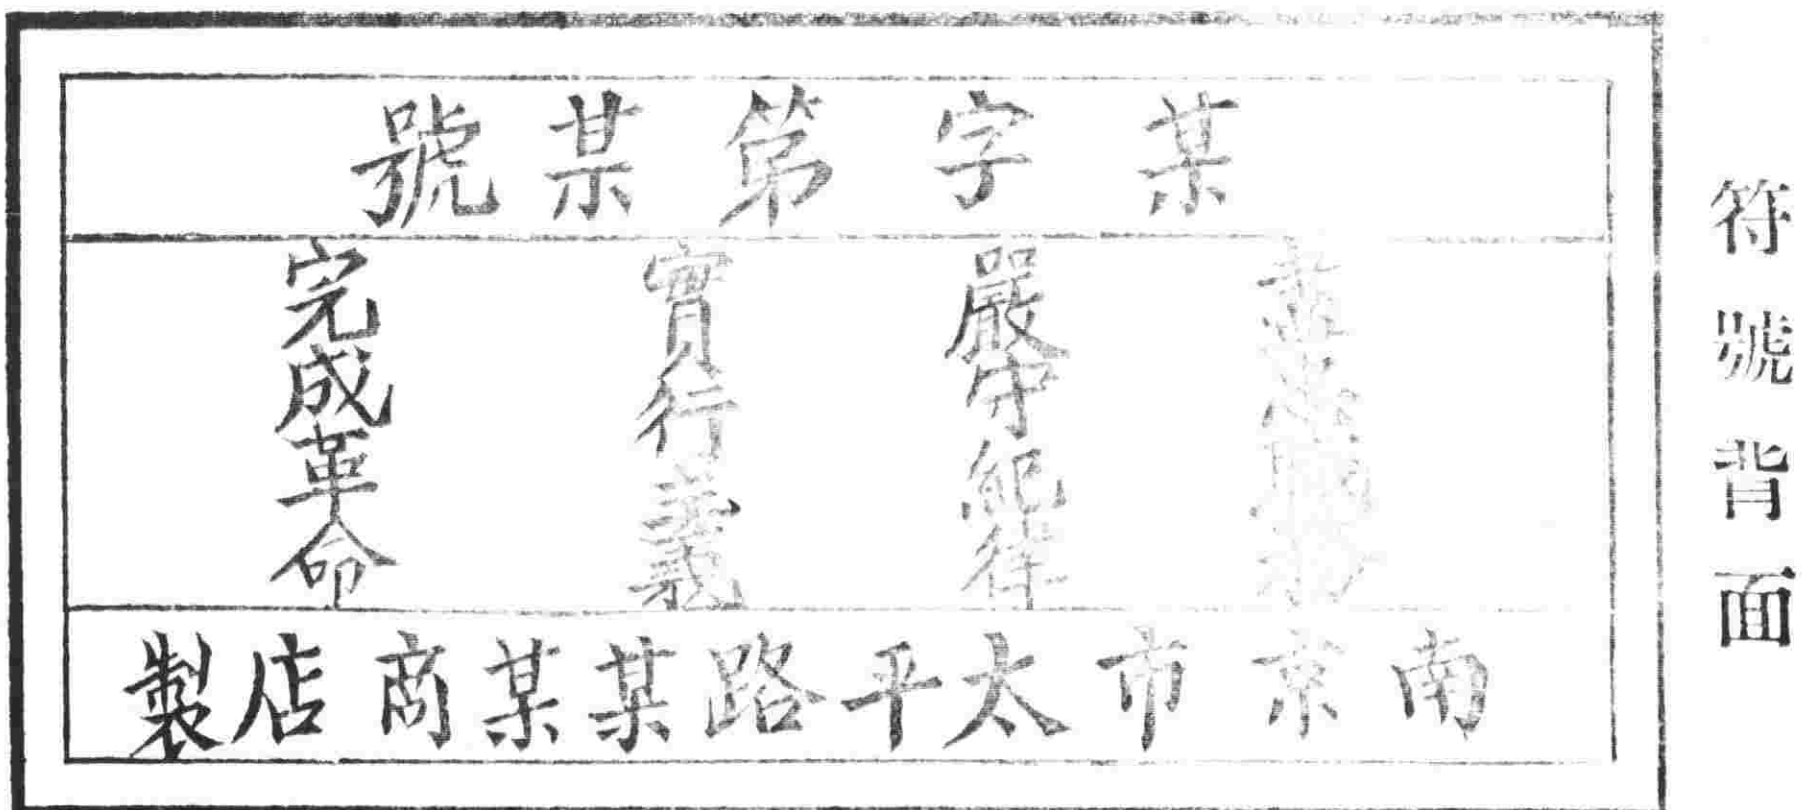 符號背面
某字第某號
盡忠職務
嚴守紀律
實行主義
完成革命
南京市太平路某某商店製